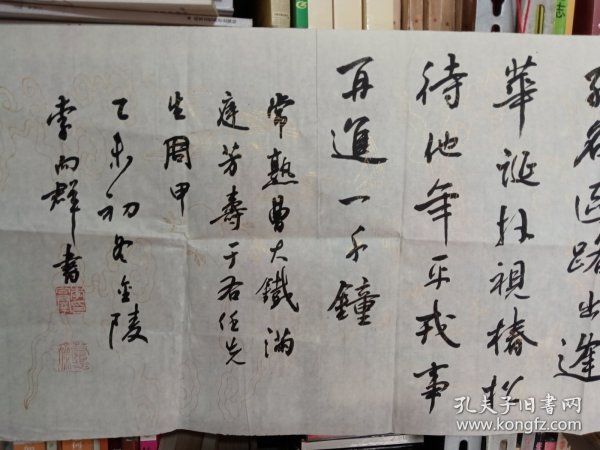 名区路出逢
華誕扶視椿松
待他年平戎事
再進一千鐘
常熟曾大鐵滿
庭芳壽于右任先
生周甲
乙未初冬金陵
李向群書
孔夫子旧书网
www.kongfz.com